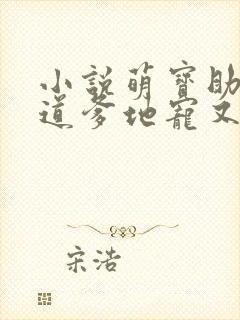 小說萌寶助
道爹地寵又
宋浩